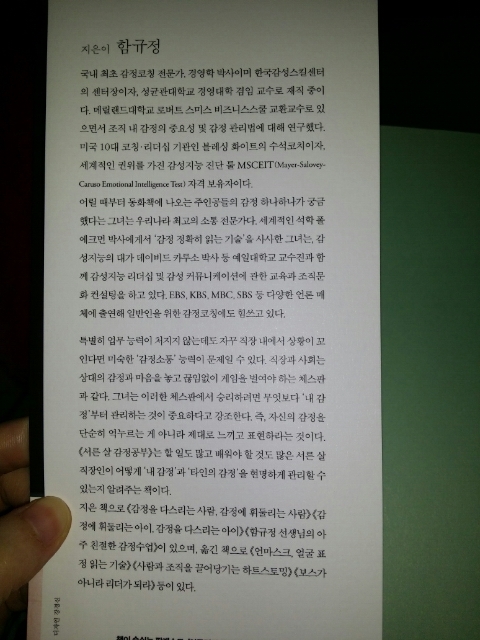 지은이 함규정
국내 최초 감정코칭 전문가, 경영학 박사이며 한국감성스킬센터
의 센터장이자, 성균관대학교 경영대학 겸임 교수로 재직 중이
다. 메릴랜드대학교 로버트 스미스 비즈니스스쿨 교환교수로 있
으면서 조직 내 감정의 중요성 및 감정 관리법에 대해 연구했다.
미국 10대 코칭·리더십 기관인 블레싱 화이트의 수석코치이자,
세계적인 권위를 가진 감성지능 진단 툴 MSCEIT(Mayer-Salovey-
Caruso Emotional Intelligence Test) 자격 보유자이다.
어릴 때부터 동화책에 나오는 주인공들의 감정 하나하나가 궁금
했다는 그녀는 우리나라 최고의 소통 전문가다. 세계적인 석학 폴
에크먼 박사에게서 '감정 정확히 읽는 기술'을 사사한 그녀는, 감
성지능의 대가 데이비드 카루소 박사 등 예일대학교 교수진과 함
께 감성지능 리더십 및 감성 커뮤니케이션에 관한 교육과 조직문
화 컨설팅을 하고 있다. EBS, KBS, MBC, SBS 등 다양한 언론 매
체에 출연해 일반인을 위한 감정코칭에도 힘쓰고 있다.
특별히 업무 능력이 처지지 않는데도 자꾸 직장 내에서 상황이 꼬
인다면 미숙한 '감정소통' 능력이 문제일 수 있다. 직장과 사회는
상대의 감정과 마음을 놓고 끊임없이 게임을 벌여야 하는 체스판
과 같다. 그녀는 이러한 체스판에서 승리하려면 무엇보다 '내 감
정'부터 관리하는 것이 중요하다고 강조한다. 즉, 자신의 감정을
단순히 억누르는 게 아니라 제대로 느끼고 표현하라는 것이다.
《서른 살 감정공부》는 할 일도 많고 배워야 할 것도 많은 서른 살
직장인이 어떻게 '내 감정'과 '타인의 감정'을 현명하게 관리할 수
있는지 알려주는 책이다.
지은 책으로 《감정을 다스리는 사람, 감정에 휘둘리는 사람》《감
정에 휘둘리는 아이, 감정을 다스리는 아이》《함규정 선생님의 아
주 친절한 감정수업》이 있으며, 옮긴 책으로 《언마스크, 얼굴 표
정 읽는 기술》《사람과 조직을 끌어당기는 하트스토밍》《보스가
아니라 리더가 되라》 등이 있다.